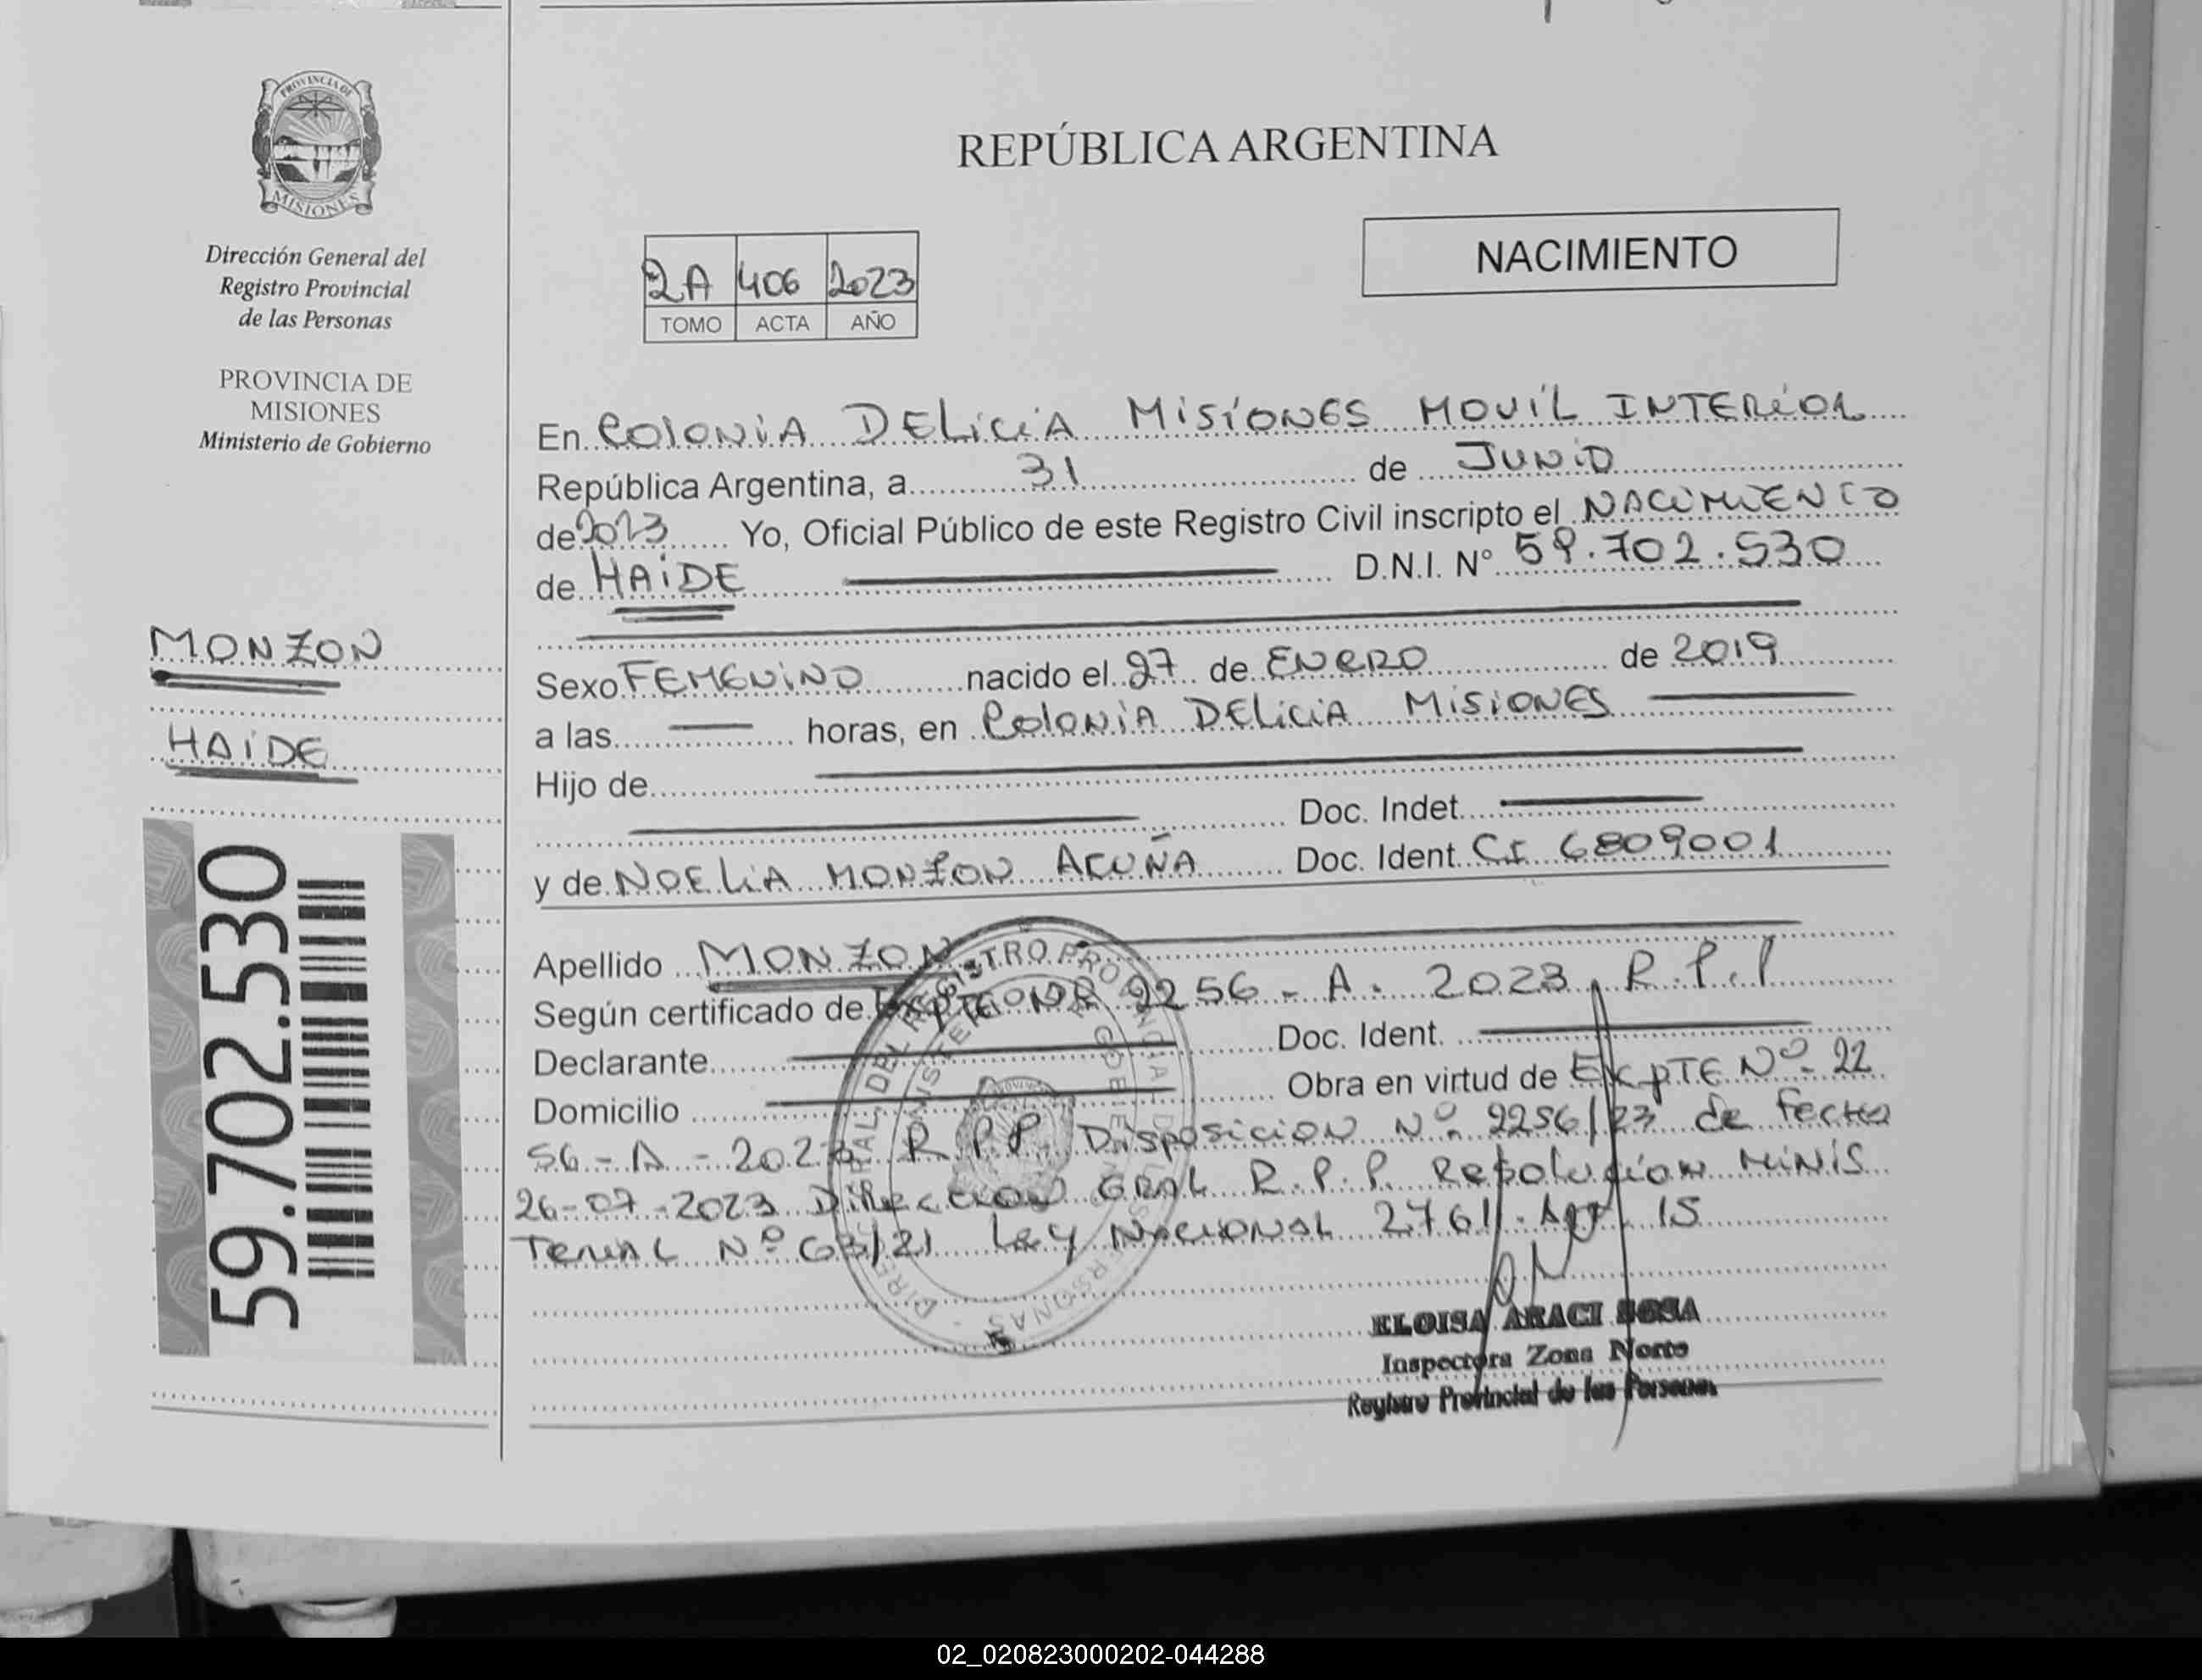 PROVINCIA DE
MISIONES
Dirección General del
Registro Provincial
de las Personas
PROVINCIA DE
MISIONES
Ministerio de Gobierno
MONZON
HAIDE
59.702.530
REPÚBLICA ARGENTINA
NACIMIENTO
2A 406 2023
TOMO ACTA AÑO
En COLONIA DELICIA MISIONES MOVIL INTERIOR
República Argentina, a 31 de JUNIO
de 2023 Yo, Oficial Público de este Registro Civil inscripto el NACIMIENTO
de HAIDE D.N.I. N° 59.702.530
Sexo FEMENINO nacido el 27 de ENERO de 2019
a las horas, en COLONIA DELICIA MISIONES
Hijo de
Doc. Indet.
y de NOELIA MONZON ACUÑA Doc. Ident. CI 6809001
Apellido MONZON
Según certificado de EXPTE Nº 2256 - A - 2023 R.P.P
Declarante Doc. Ident.
Domicilio Obra en virtud de EXPTE Nº 22
56 - A - 2023 R.P.P. Disposicion Nº 2256/23 de fecha
26-07-2023 Direccion GRAL R.P.P. Resolucion MINIS
Terial Nº 63/21 Ley Nacional 27611 - Art 15
ELOISA ARACI SOSA
Inspectora Zona Norte
Registro Provincial de las Personas
02_020823000202-044288